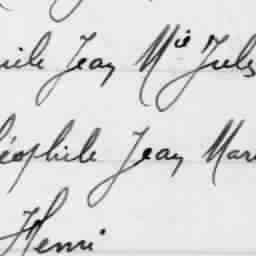 Jean Mie Jules
Théophile Jean Marie
Henri